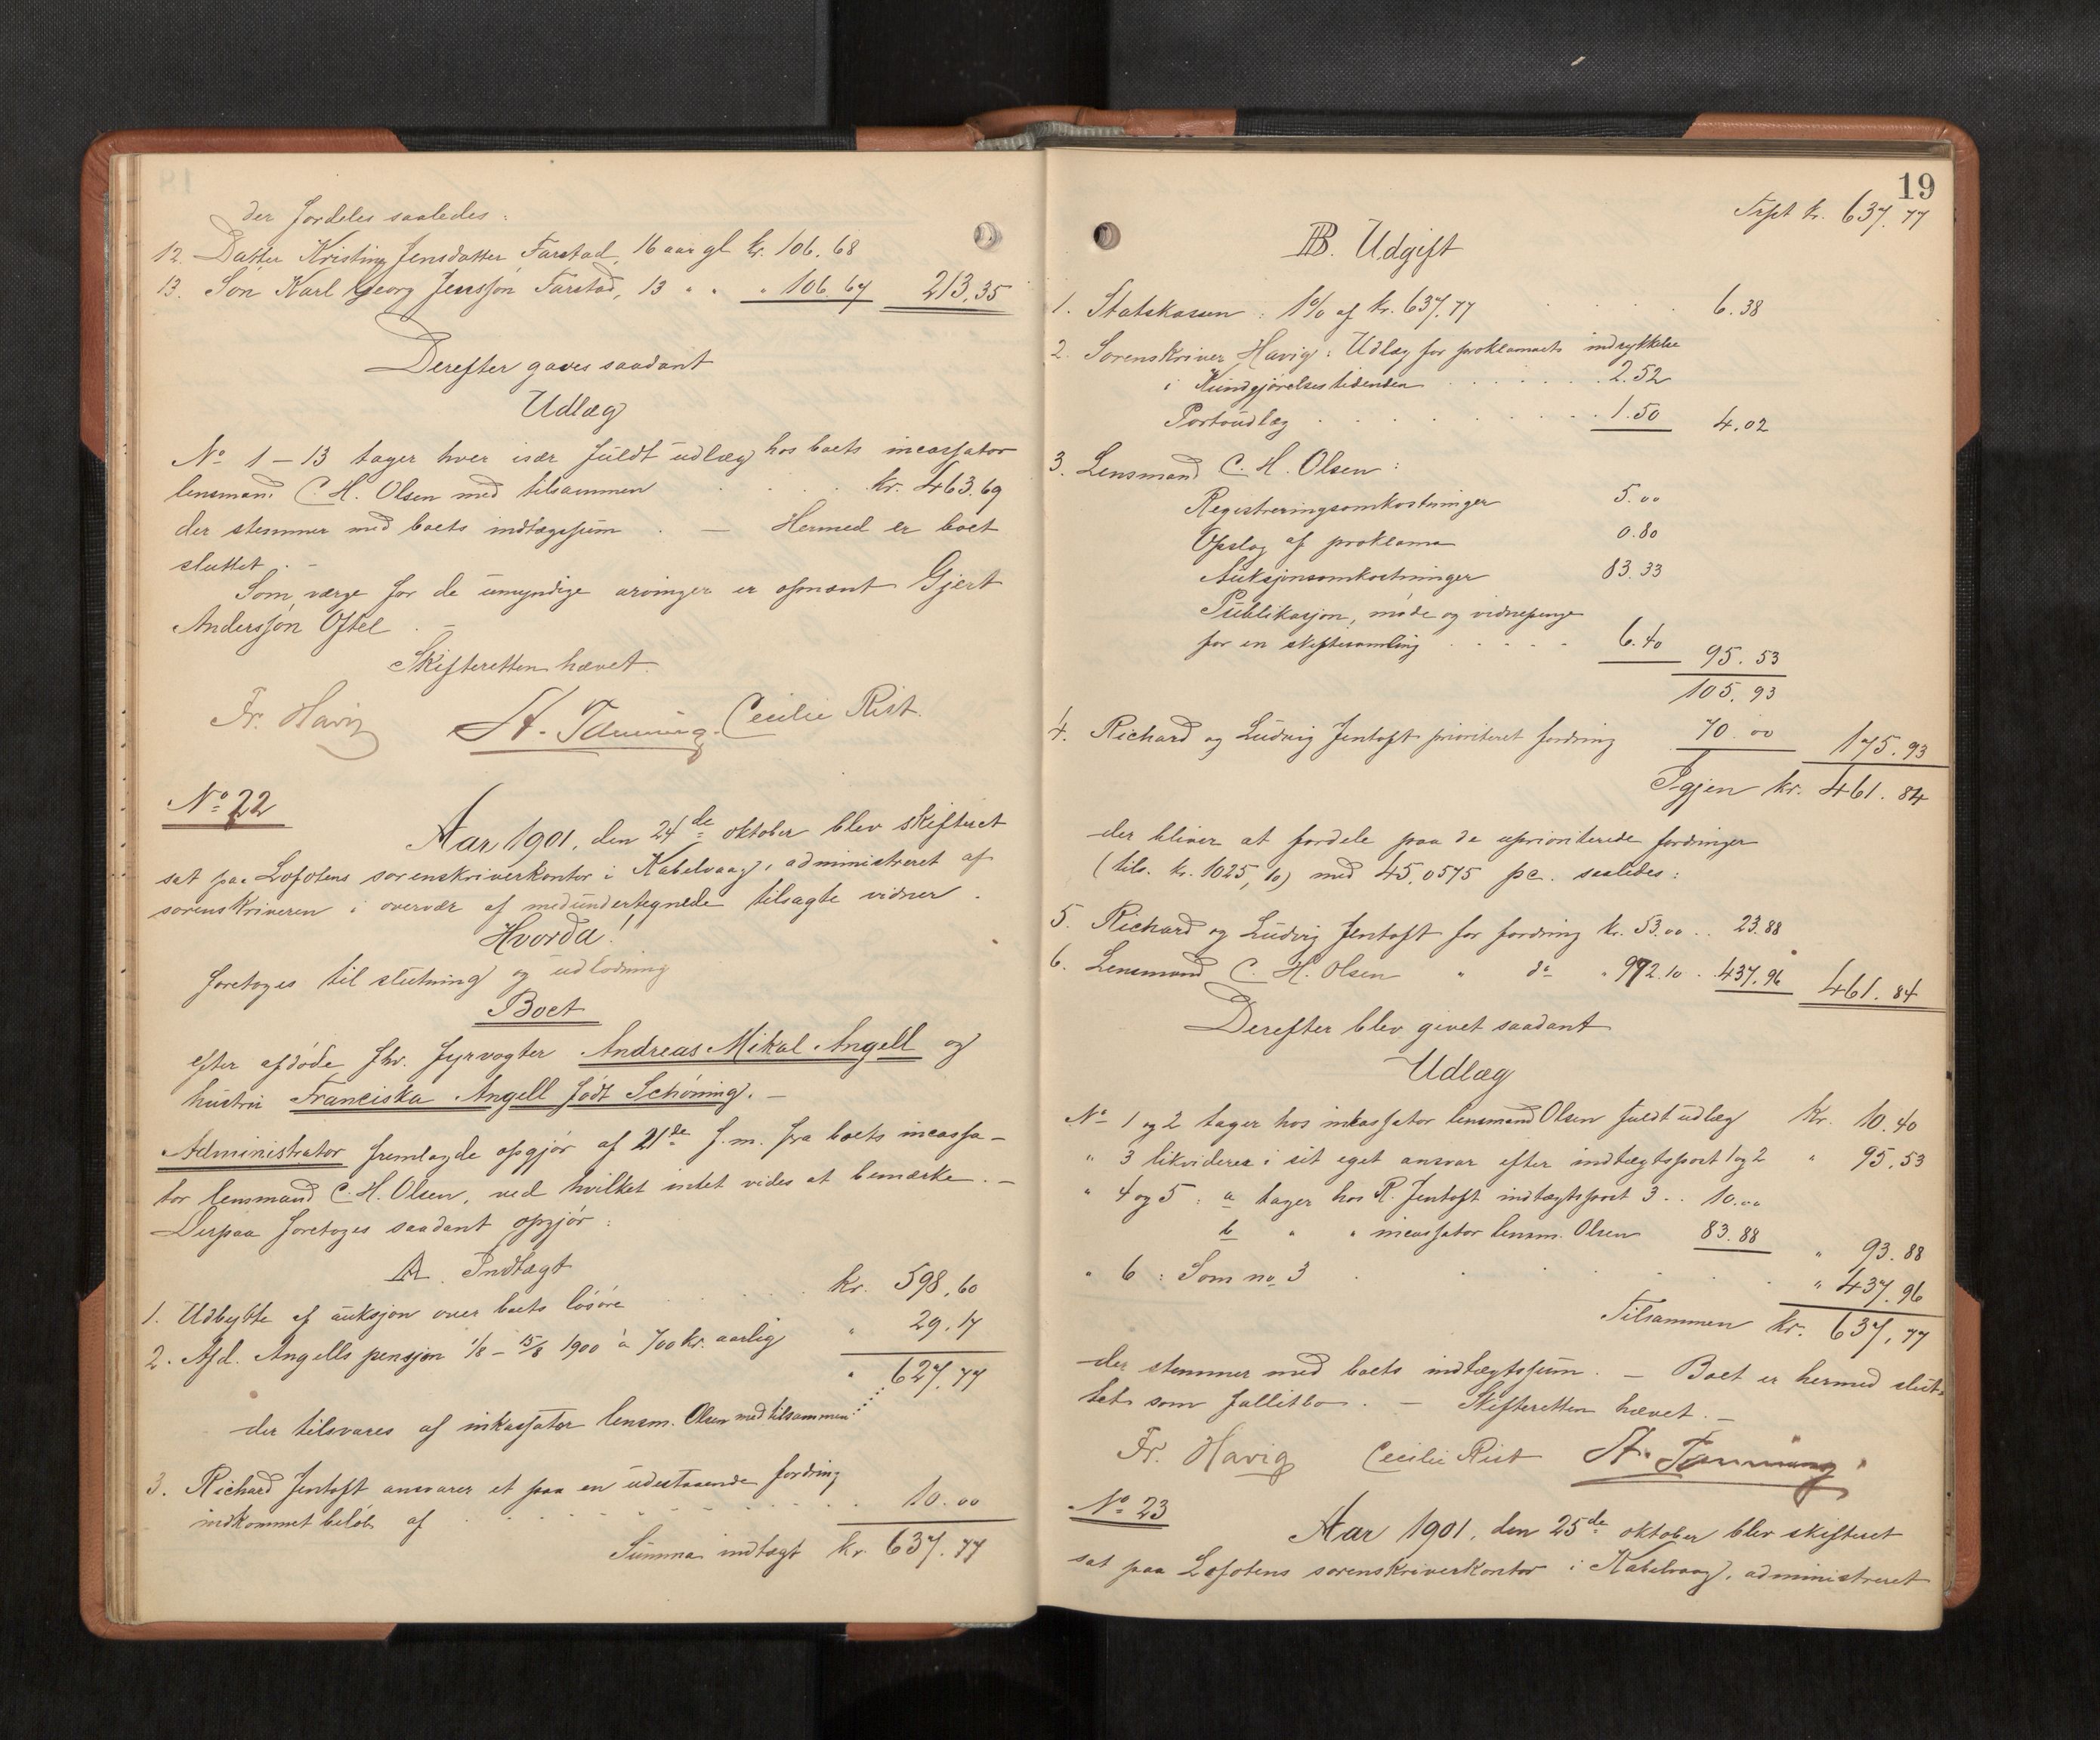 der fordeles saaledes:
12. Datter Kristine Jensdatter Farstad, 16 aar gl kr. 106.68
13. Søn Karl Georg Jenssøn Farstad, 13 " " " 106.67 213.35
Derefter gaves saadant
Udlæg
No 1 – 13 tager hver især fuldt udlæg hos boets incassator
lensmand C. H. Olsen med tilsammen . . . . kr. 463.69
der stemmer med boets indtægssum . — Hermed er boet
sluttet. –
Som værge for de umyndige arvinger er opnævnt Gjert
Anderssøn Oftel. –
Skifteretten hævet.
Fr. Havig H. Tønning. Cecilie Rist.
No 22
Aar 1901, den 24de oktober blev skifteret
sat paa Lofotens sorenskriverkontor i Kabelvaag, administreret af
sorenskriveren i overvær af medundertegnede tilsagte vidner.
Hvorda!
foretoges til slutning og udlodning
Boet
efter afdøde fhv. fyrvogter Andreas Mikal Angell og
hustru Franciska Angell født Schøning. –
Administrator fremlagde opgjør af 21de f. m. fra boets incassa-
tor lensmand C. H. Olsen, ved hvilket intet vides at bemærke. –
Derpaa foretoges saadant opgjør:
A. Indtægt
1. Udbytte af auksjon over boets løsøre . . . . . kr. 598.60
2. Afd. Angells pensjon 1/8 – 15/8 1900 à 700 kr. aarlig " 29.17
" 627.77
der tilsvares af inkassator lensm. Olsen med tilsammen
3. Richard Jentoft ansvarer et paa en udestaaende fordring
indkommet beløb af . . . . . . 10.00
Summa indtægt kr. 637.77
19
Trspt kr. 637.77
B. Udgift
1. Statskassen: 1% af kr. 637.77 . . . 6.38
2. Sorenskriver Havig: Udlæg for proklamaets indrykkelse
i Kundgjørelsestidenden . . . . . . 2.52
Portoudlæg . . . . . . . 1.50 4.02
3. Lensmand C. H. Olsen:
Registreringsomkostninger 5.00
Opslag af proklama 0.80
Auksjonsomkostninger 83.33
Publikasjon, møde og vidnepenge
for en skiftesamling . . . . . 6.40 95.53
105.93
4. Richard og Ludvig Jentoft prioriteret fordring 70.00 175.93
Igjen kr. 461.84
der bliver at fordele paa de uprioriterede fordringer
(tils. kr. 1025,10) med 45,0575 pc. saaledes:
5. Richard og Ludvig Jentoft for fordring kr. 53.00 . . 23.88
6. Lensmand C. H. Olsen " do " 972.10 . 437.96 461.84
Derefter blev givet saadant
Udlæg
No 1 og 2 tager hos inkassator lensmand Olsen fuldt udlæg kr. 10.40
" 3 likviderer i sit eget ansvar efter indtægtspost 1 og 2 " 95.53
" 4 og 5: a tager hos R. Jentoft indtægtspost 3 . . 10.00
b " " incassator lensm. Olsen 83.88 " 93.88
" 6: Som no 3 . . . . . " 437.96
Tilsammen kr. 637.77
der stemmer med boets indtægtssum. – Boet er hermed slut-
tet som fallitbo. – Skifteretten hævet. –
Fr. Havig Cecilie Rist H. Tønning.
No 23
Aar 1901, den 25de oktober blev skifteret
sat paa Lofotens sorenskriverkontor i Kabelvaag, administreret